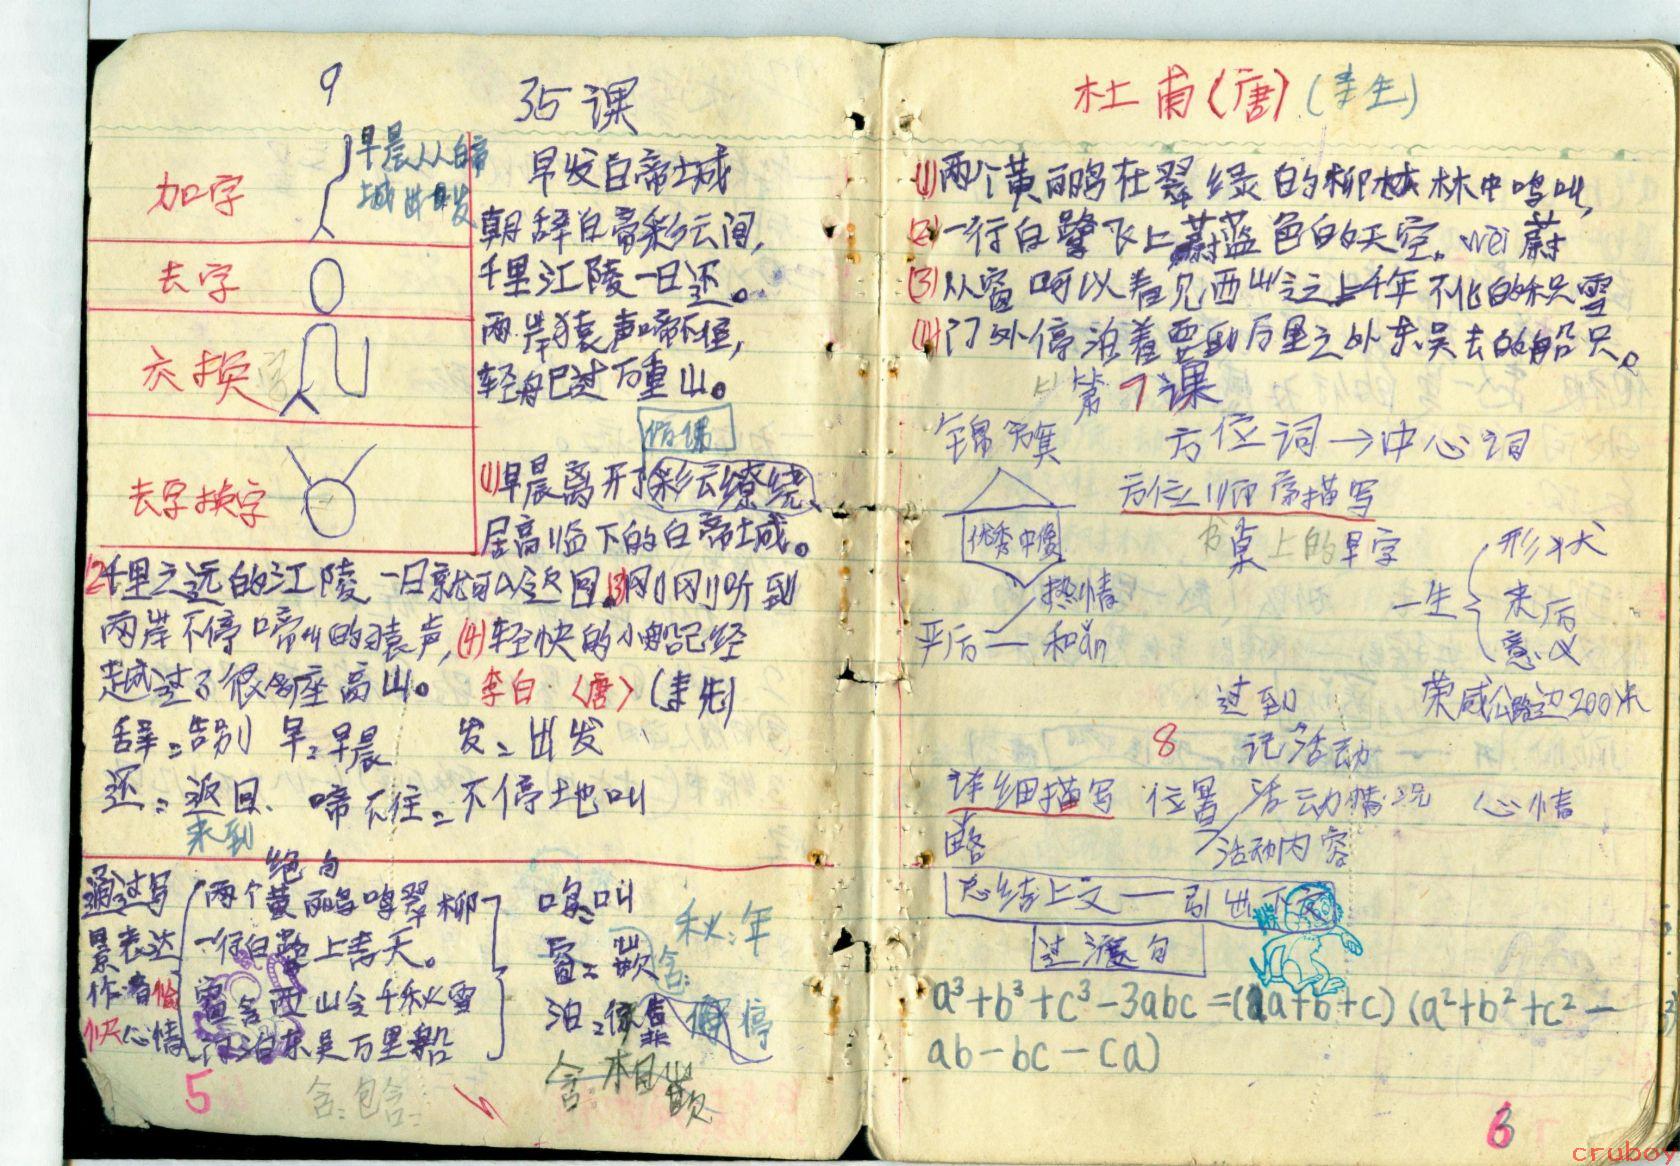 9
35课
加字
早晨从白帝
城出发
去字
去换字
去字换字
早发白帝城
朝辞白帝彩云间,
千里江陵一日还。
两岸猿声啼不住,
轻舟已过万重山。
(1)早晨离开了彩云缭绕、
居高临下的白帝城。
(2)千里之远的江陵一日就可以返回。(3)刚刚听到
两岸不停啼叫的猿声,(4)轻快的小船已经
越过了很多座高山。 李白〈唐〉
辞:告别 早:早晨 发:出发
还:返回. 啼不住:不停地叫
来到
绝句
通过写
景表达
作者愉
快心情
两个黄鹂鸣翠柳
一行白鹭上青天。
窗含西山含千秋雪
门泊东吴万里船
鸣:叫
秋:年
窗:
含:
泊:
停
含:
5
含:包含:
杜甫(唐)
(1)两个黄鹂在翠绿的柳林中鸣叫,
(2)一行白鹭飞上蔚蓝色的天空。wèi蔚
(3)从窗可以看见西山之上千年不化的积雪
(4)门外停泊着要到万里之外东吴去的船只。
第7课
锦旗 方位词→中心词
方位顺序描写
优秀中队
书桌上的早字
热情
严后——和ǎn
一生
形状
来后
意义
过到
荣威公路边200米
8 记活动
详细描写 位置 活动情况 心情
略
活动内容
总结上文——引出下文
过渡句
a³+b³+c³-3abc=(a+b+c)(a²+b²+c²-
ab-bc-ca)
6
cruboy